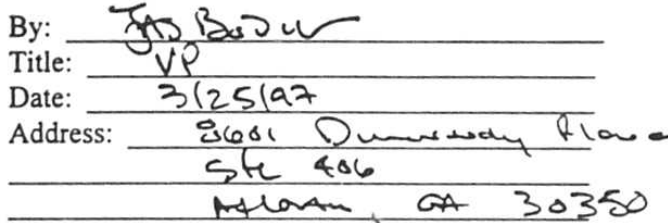 By:
Title: VP
Date: 3/25/97
Address: 8601 Dunwoody Place
Ste 406
Atlanta GA 30350